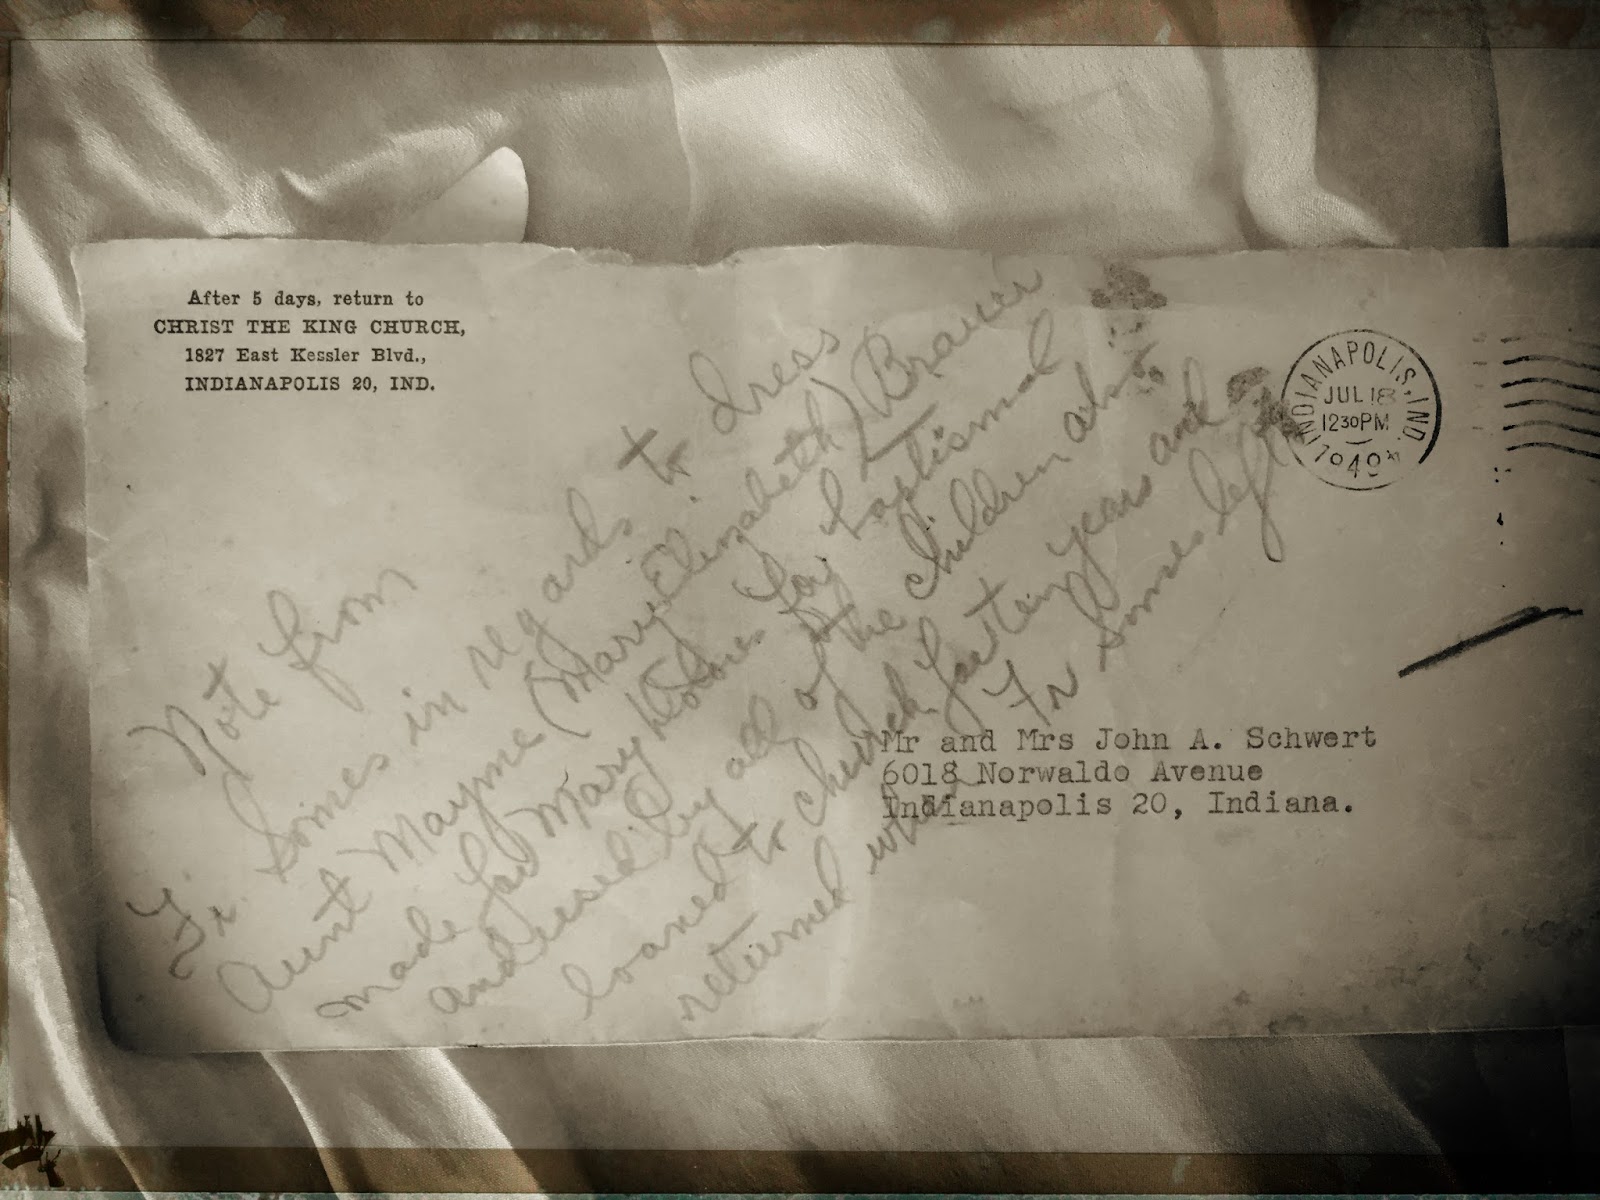 After 5 days, return to
CHRIST THE KING CHURCH,
1827 East Kessler Blvd.,
INDIANAPOLIS 20, IND.
INDIANAPOLIS, IND.
JUL 18
12 30 PM
1949
Note from
Fr. Somes in regards to dress
Aunt Mayme (Mary Elizabeth) Brauer
made for Mary Dolores for baptismal
and used by all of the children also
loaned to church for ten years and
returned when Fr Somes left
Mr and Mrs John A. Schwert
6018 Norwaldo Avenue
Indianapolis 20, Indiana.